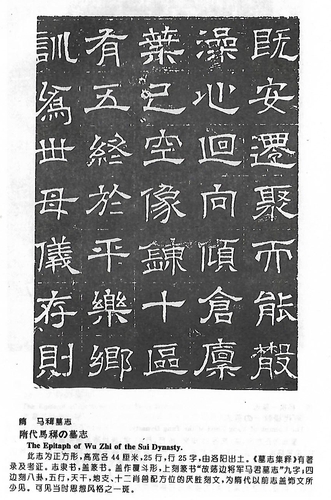 既安遷聚而能散
澡心迴向傾倉廩
葉已空像肆十區
有五終於平樂鄉
訓爲世母儀存則
隋 马穉墓志
隋代馬穉の墓志
The Epitaph of Wu Zhi of the Sui Dynasty.
此志为正方形，高宽各44厘米，25行，行25字，由洛阳出土。《墓志集释》有著
录及考证。志隶书，盖篆书。盖作覆斗形，上刻篆书“故荡边将军马君墓志”九字，四
边刻八卦，五行，天干，地支，十二肖兽配方位的厌胜刻文，为隋代以前志盖饰文所
少见。可见当时思想风格之一斑。